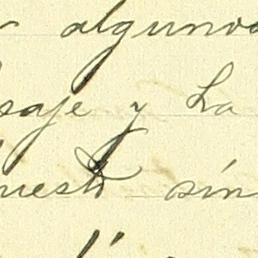 algunos
saje y La
uesto sin